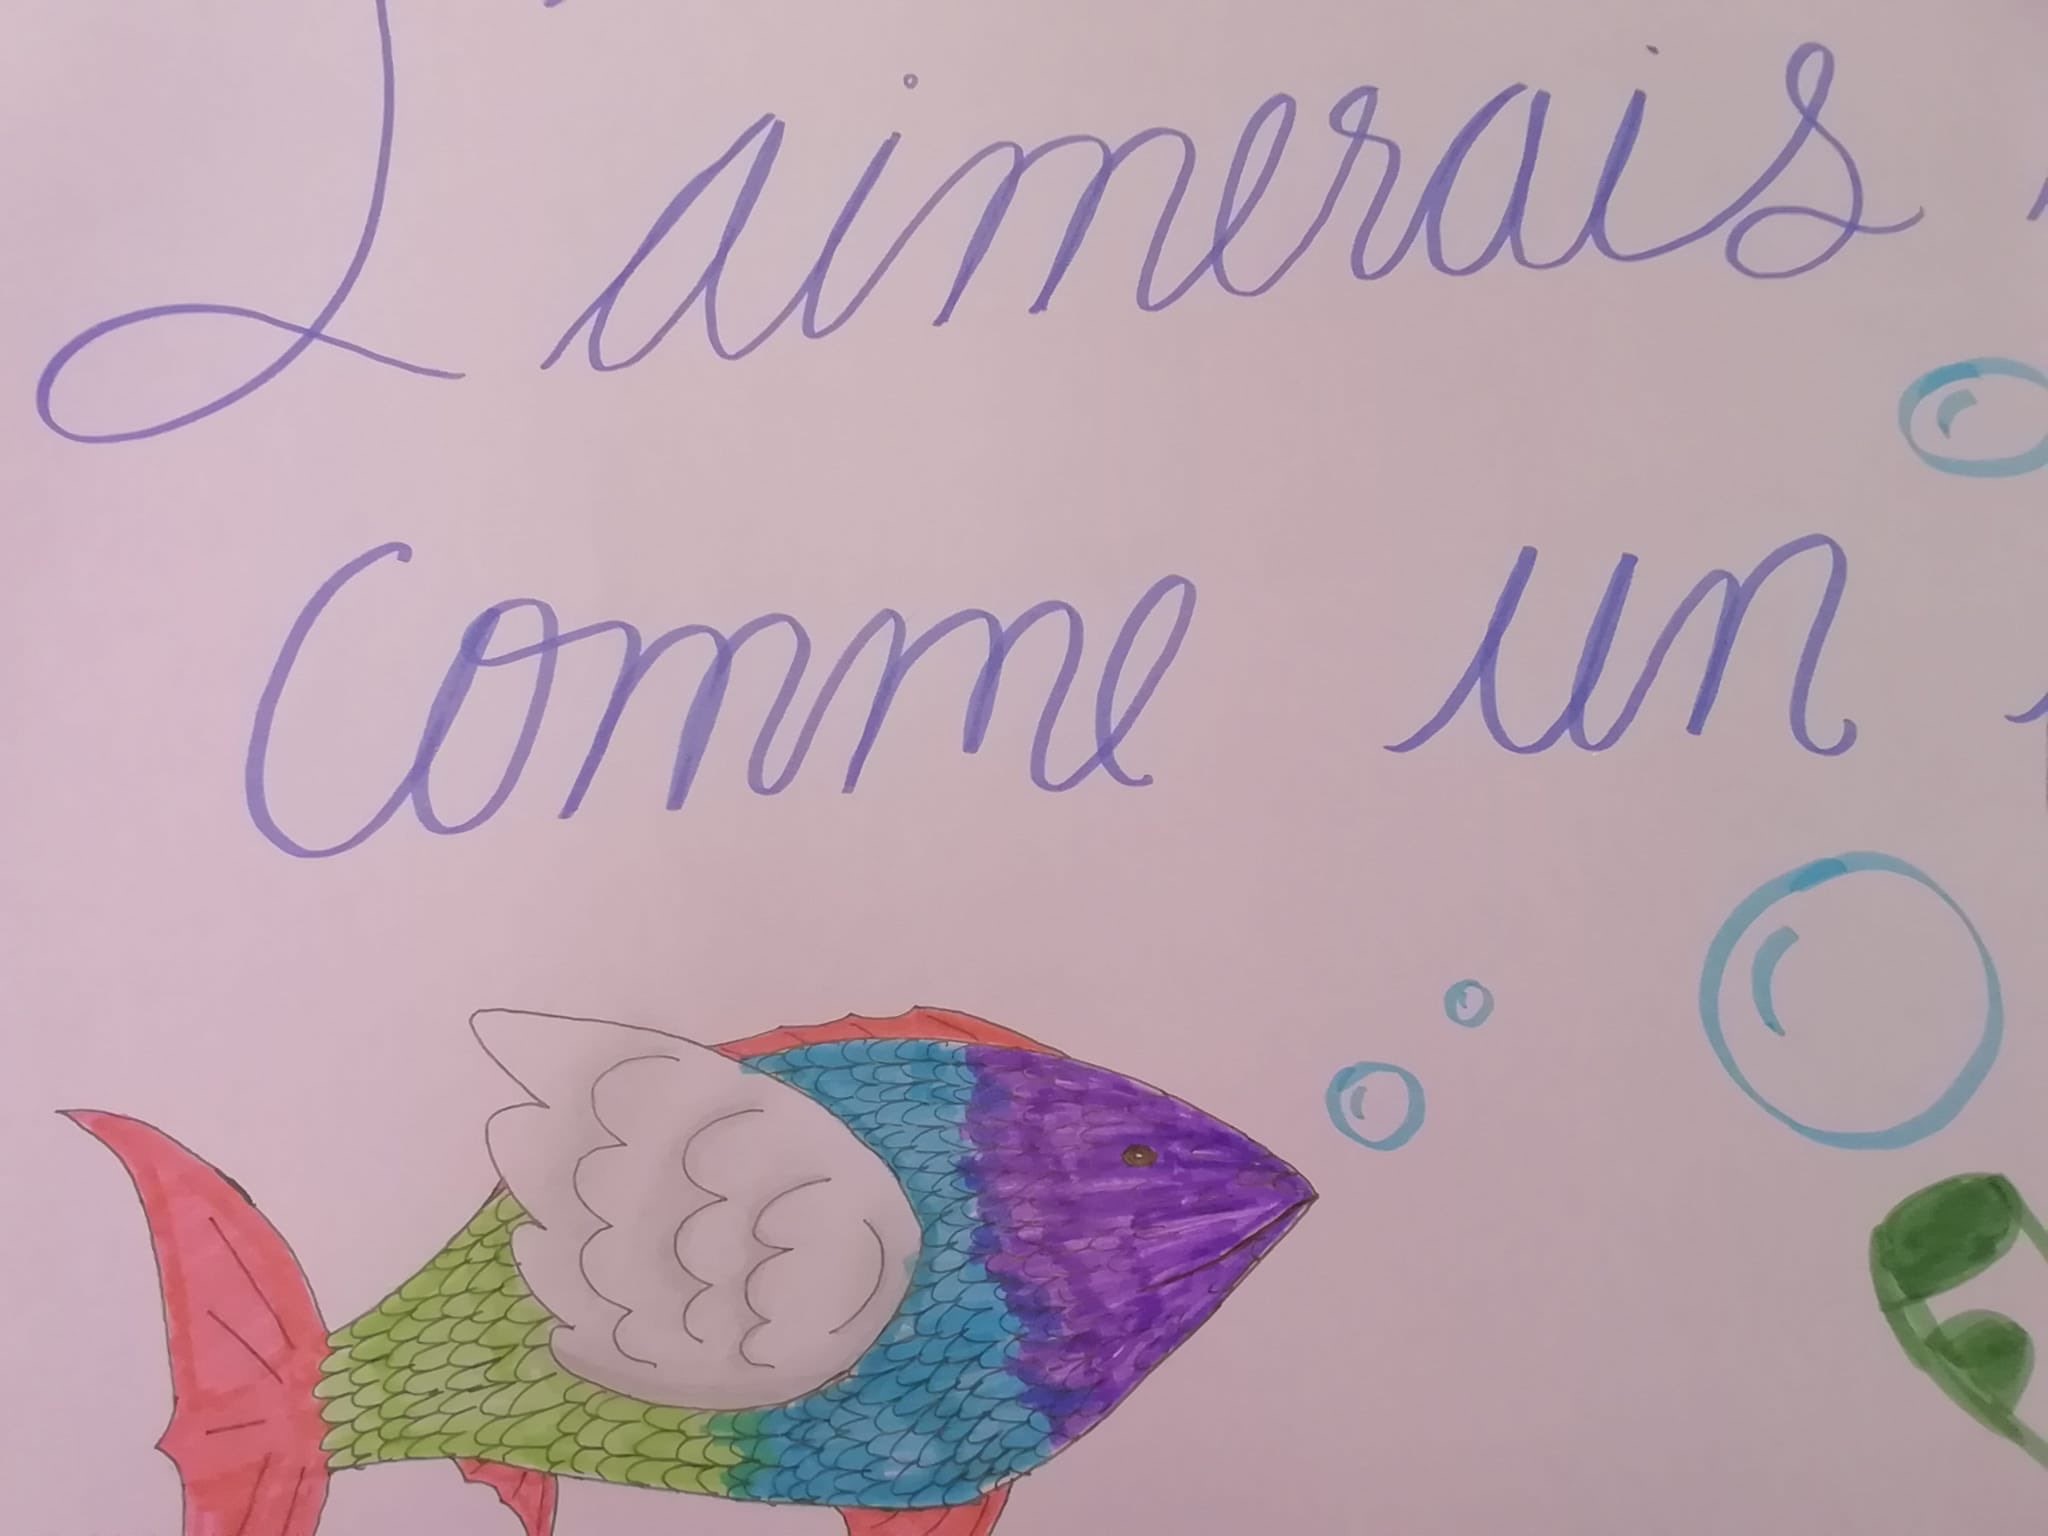 J'aimerais
Comme un